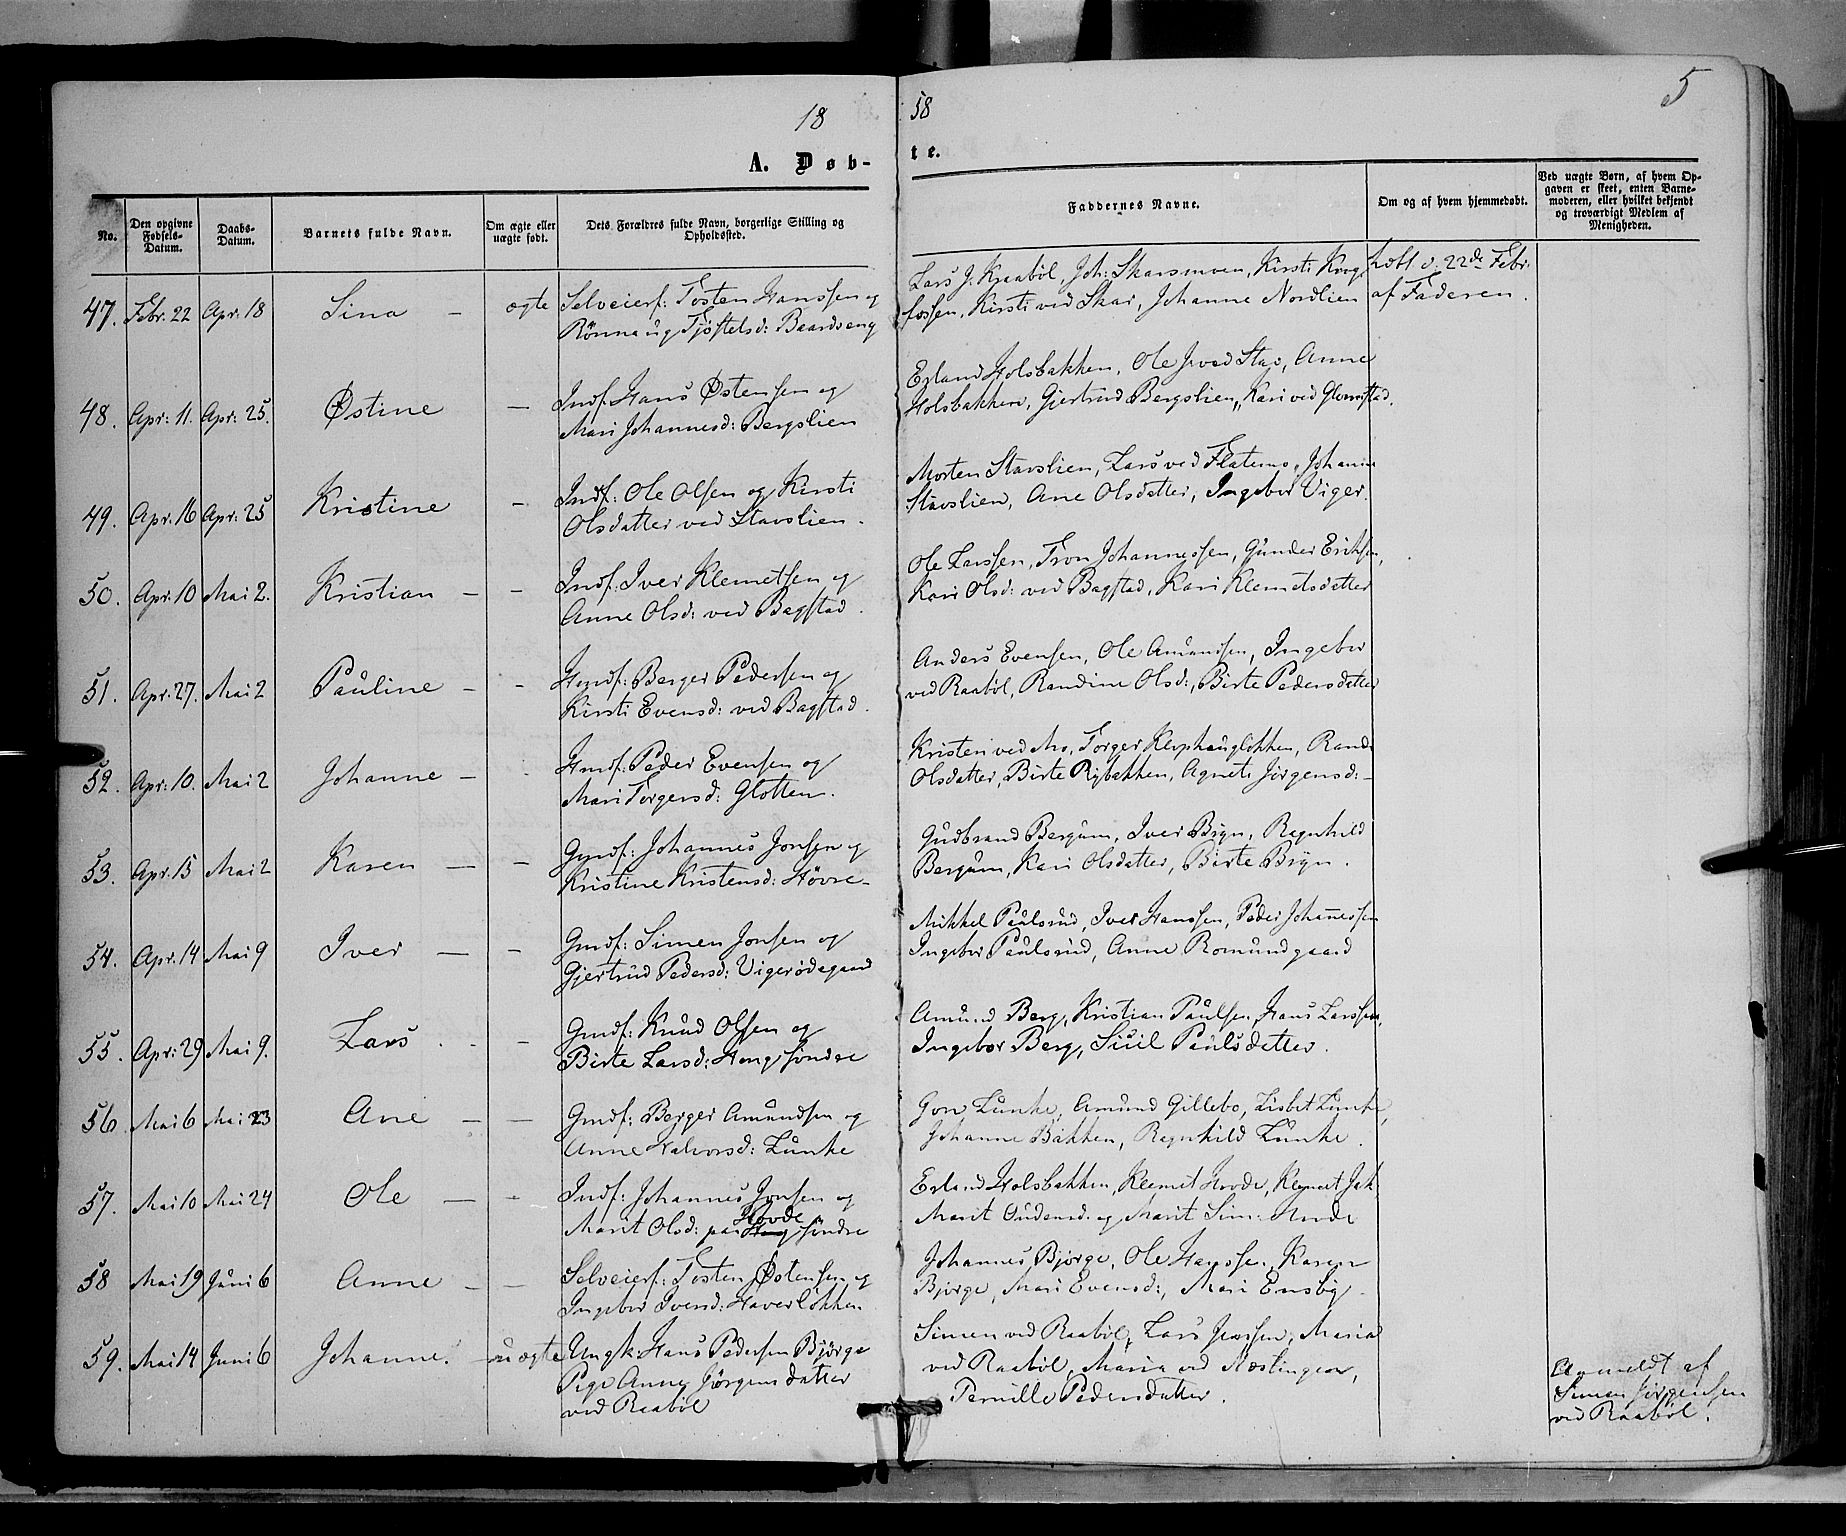 18
58
5
A. Døb-
te.
No.
Den opgivne Fødsels-Datum.
Daabs-Datum.
Barnets fulde Navn.
Om ægte eller uægte født.
Dets Forældres fulde Navn, borgerlige Stilling og Opholdssted.
Faddernes Navne.
Om og af hvem hjemmedøbt.
Ved uægte Børn, af hvem Op-
gaven er skeet, enten Barne-
moderen, eller hvilket bekjendt
og troværdigt Medlem af
Menigheden.
47. Febr. 22 Apr: 18 Sina – ægte Selveierf: Tosten Hanssen og
Rønnaug Tjøstelsd: Baardseng
Lars J. Kraabøl, Joh: Skarsmoen, Kirsti
fossen, Kirsti ved Skar, Johanne Nordlien
22de Febr.
af Faderen.
48. Apr: 11. Apr: 25. Østine – Indf. Hans Østensen og
Mari Johannesd: Bergslien
Erland Holsbakken, Ole ved Stav, Anne
Holsbakken, Gjertrud Bergslien, Kari ved Glomstad.
49. Apr: 16 Apr: 25 Kristine – Indf: Ole Olsen og Kirsti
Olsdatter ved Stavslien.
Morten Stavslien, Lars ved Flatemo, Johanne
Stavslien, Ane Olsdatter, Ingebor Viger.
50. Apr: 10 Mai 2. Kristian – – Indf: Iver Klemetsen og
Anne Olsd: ved Bagstad.
Ole Larssen, Tron Johannessen, Gunder Eriksen,
Kari Olsd: ved Bagstad, Kari Klemetsdatter
51. Apr: 27. Mai 2 Pauline – – Hmdf: Berger Pedersen og
Kirsti Evensd: ved Bagstad.
Anders Evensen, Ole Amundsen, Ingebor
ved Raabøl, Randine Olsd:, Birte Pedersdatter
52. Apr: 10. Mai 2 Johanne – Hmdf: Peder Evensen og
Mari Torgersd: Glotten.
Kristen ved Mo, Torger Klophougløkken, Randi
Olsdatter, Birte Rybakken, Agnete Jørgensd: –
53. Apr: 15 Mai 2 Karen – – Gmdf: Johannes Jonsen og
Kristine Kristensd: Høvre –
Gudbrand Bergum, Iver Bryn, Regnhild
Bergum, Kari Olsdatter, Birte Bryn.
54. Apr: 14 Mai 9 Iver – – Gmdf: Simen Jonsen og
Gjertrud Pedersd: Vigerødegaard
Mikkel Paulsrud, Iver Hanssen, Peder Johannessen
Ingebor Paulsrud, Anne Romundgaard
55. Apr: 29 Mai 9. Lars – Gmdf: Knud Olsen og
Birte Larsd: Haug søndre
Amund Berg, Kristian Paulsen, Hans Larssen,
Ingebor Berg, Siul Paulsdatter.
56 Mai 6 Mai 23 Ane – – Gmdf: Berger Amundsen og
Anne Halvorsd: Lunke
Gon Lunke, Amund Gillebo, Lisbet Lunke,
Johanne Bakken, Regnhild Lunke.
57. Mai 10 Mai 24 Ole – – Indf: Johannes Jonsen og
Hovde
Marit Olsd: paa søndre
Erland Holsbakken, Klemet Hovde, Klemet Jak.
Marit Oudensd: og Marit Sim: Hovde
58 Mai 19 Juni 6 Anne – – Selveierf: Tosten Østensen og
Ingebor Iversd: Haverløkken
Johannes Bjørge, Ole Hanssen, Karen
Bjørge, Mari Evensd:, Mari Ensby –
59. Mai 14 Juni 6 Johanne. – uægte Ungk: Hans Pedersen Bjørge
Pige Anne Jørgensdatter
ved Raabøl
Simen ved Raabøl, Lars Jenssen, Maria
ved Raabøl, Maria ved Næslingen,
Pernille Pedersdatter.
Anmeldt af
Simen Jørgensen
ved Raabøl.